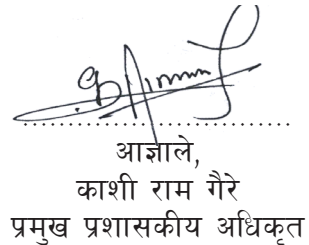 आज्ञाले,
काशी राम गैरे
प्रमुख प्रशासकीय अधिकृत